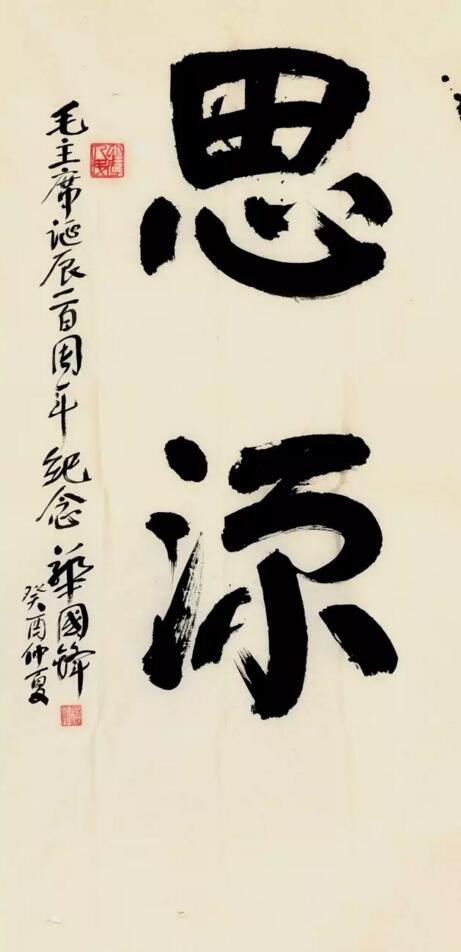 思源
毛主席诞辰一百周年纪念 華國鋒
癸酉仲夏